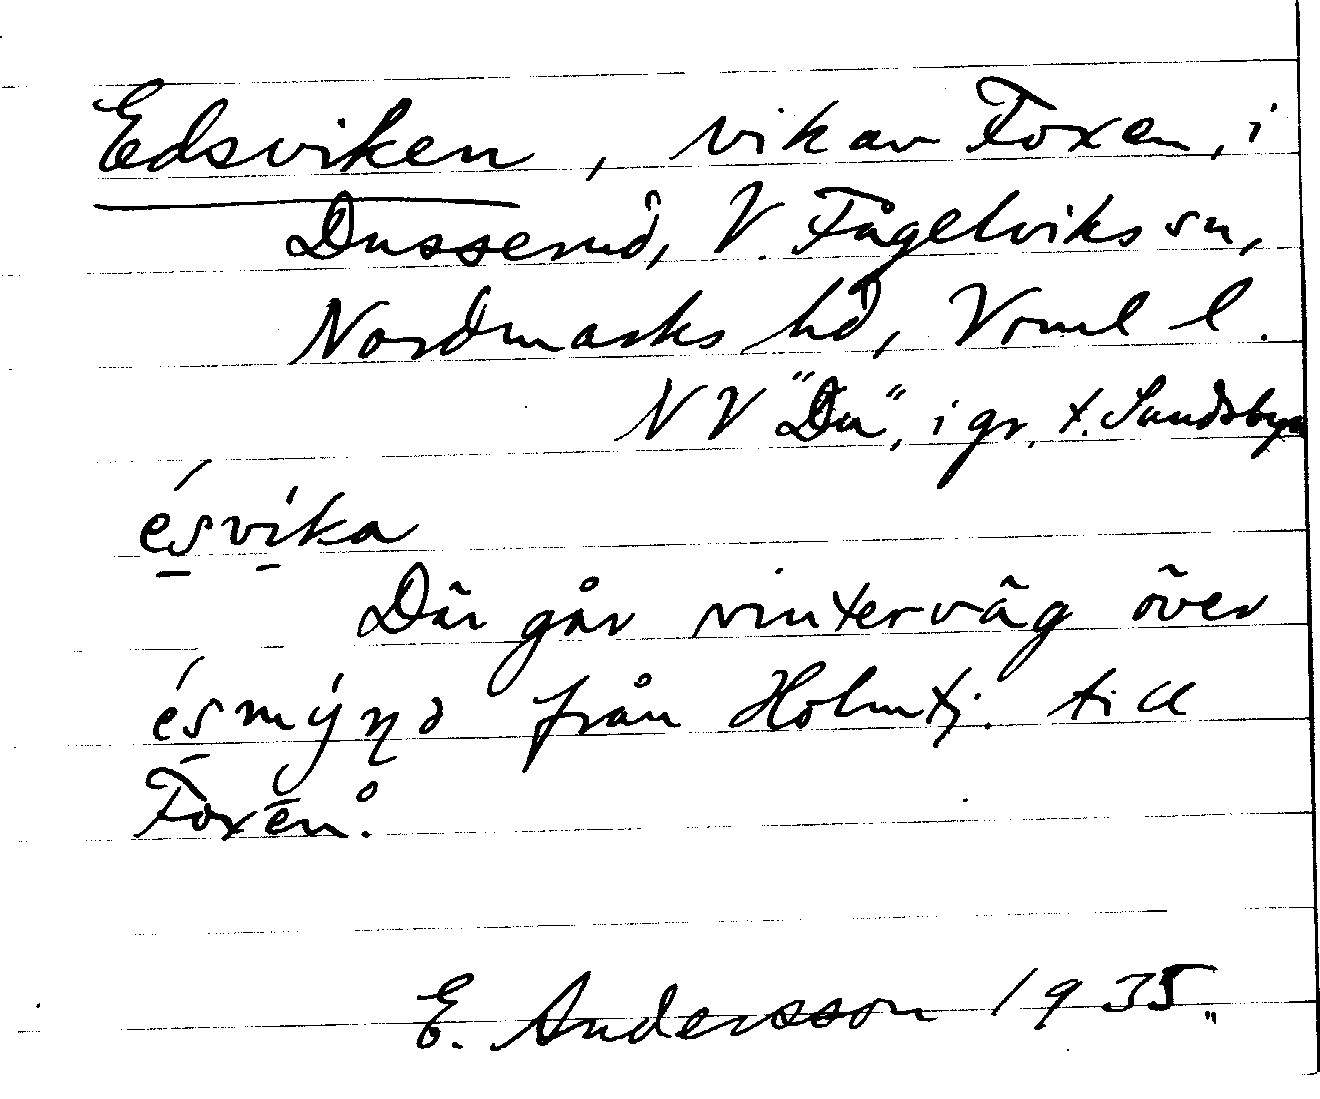 Edsviken, vik av Foxen, i
Dusserud, V. Fågelviks sn,
Nordmarks hd, Vrml l.
NV "Du", i gr. t. Sandsbyn
és̠vi̠ka
Där går vinterväg över
és̠mýnd från Holmtj. till
Foxen.
E. Andersson 1935